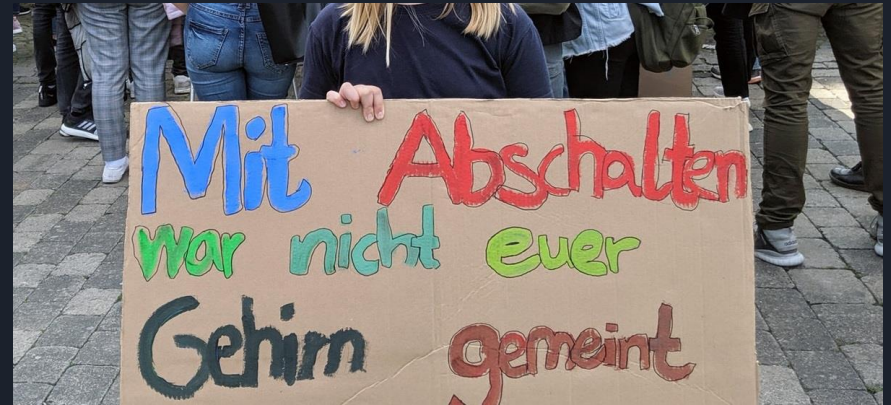 Mit Abschalten
war nicht euer
Gehirn gemeint